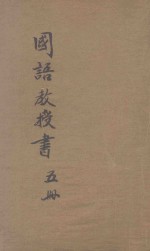 國語教授書 五册